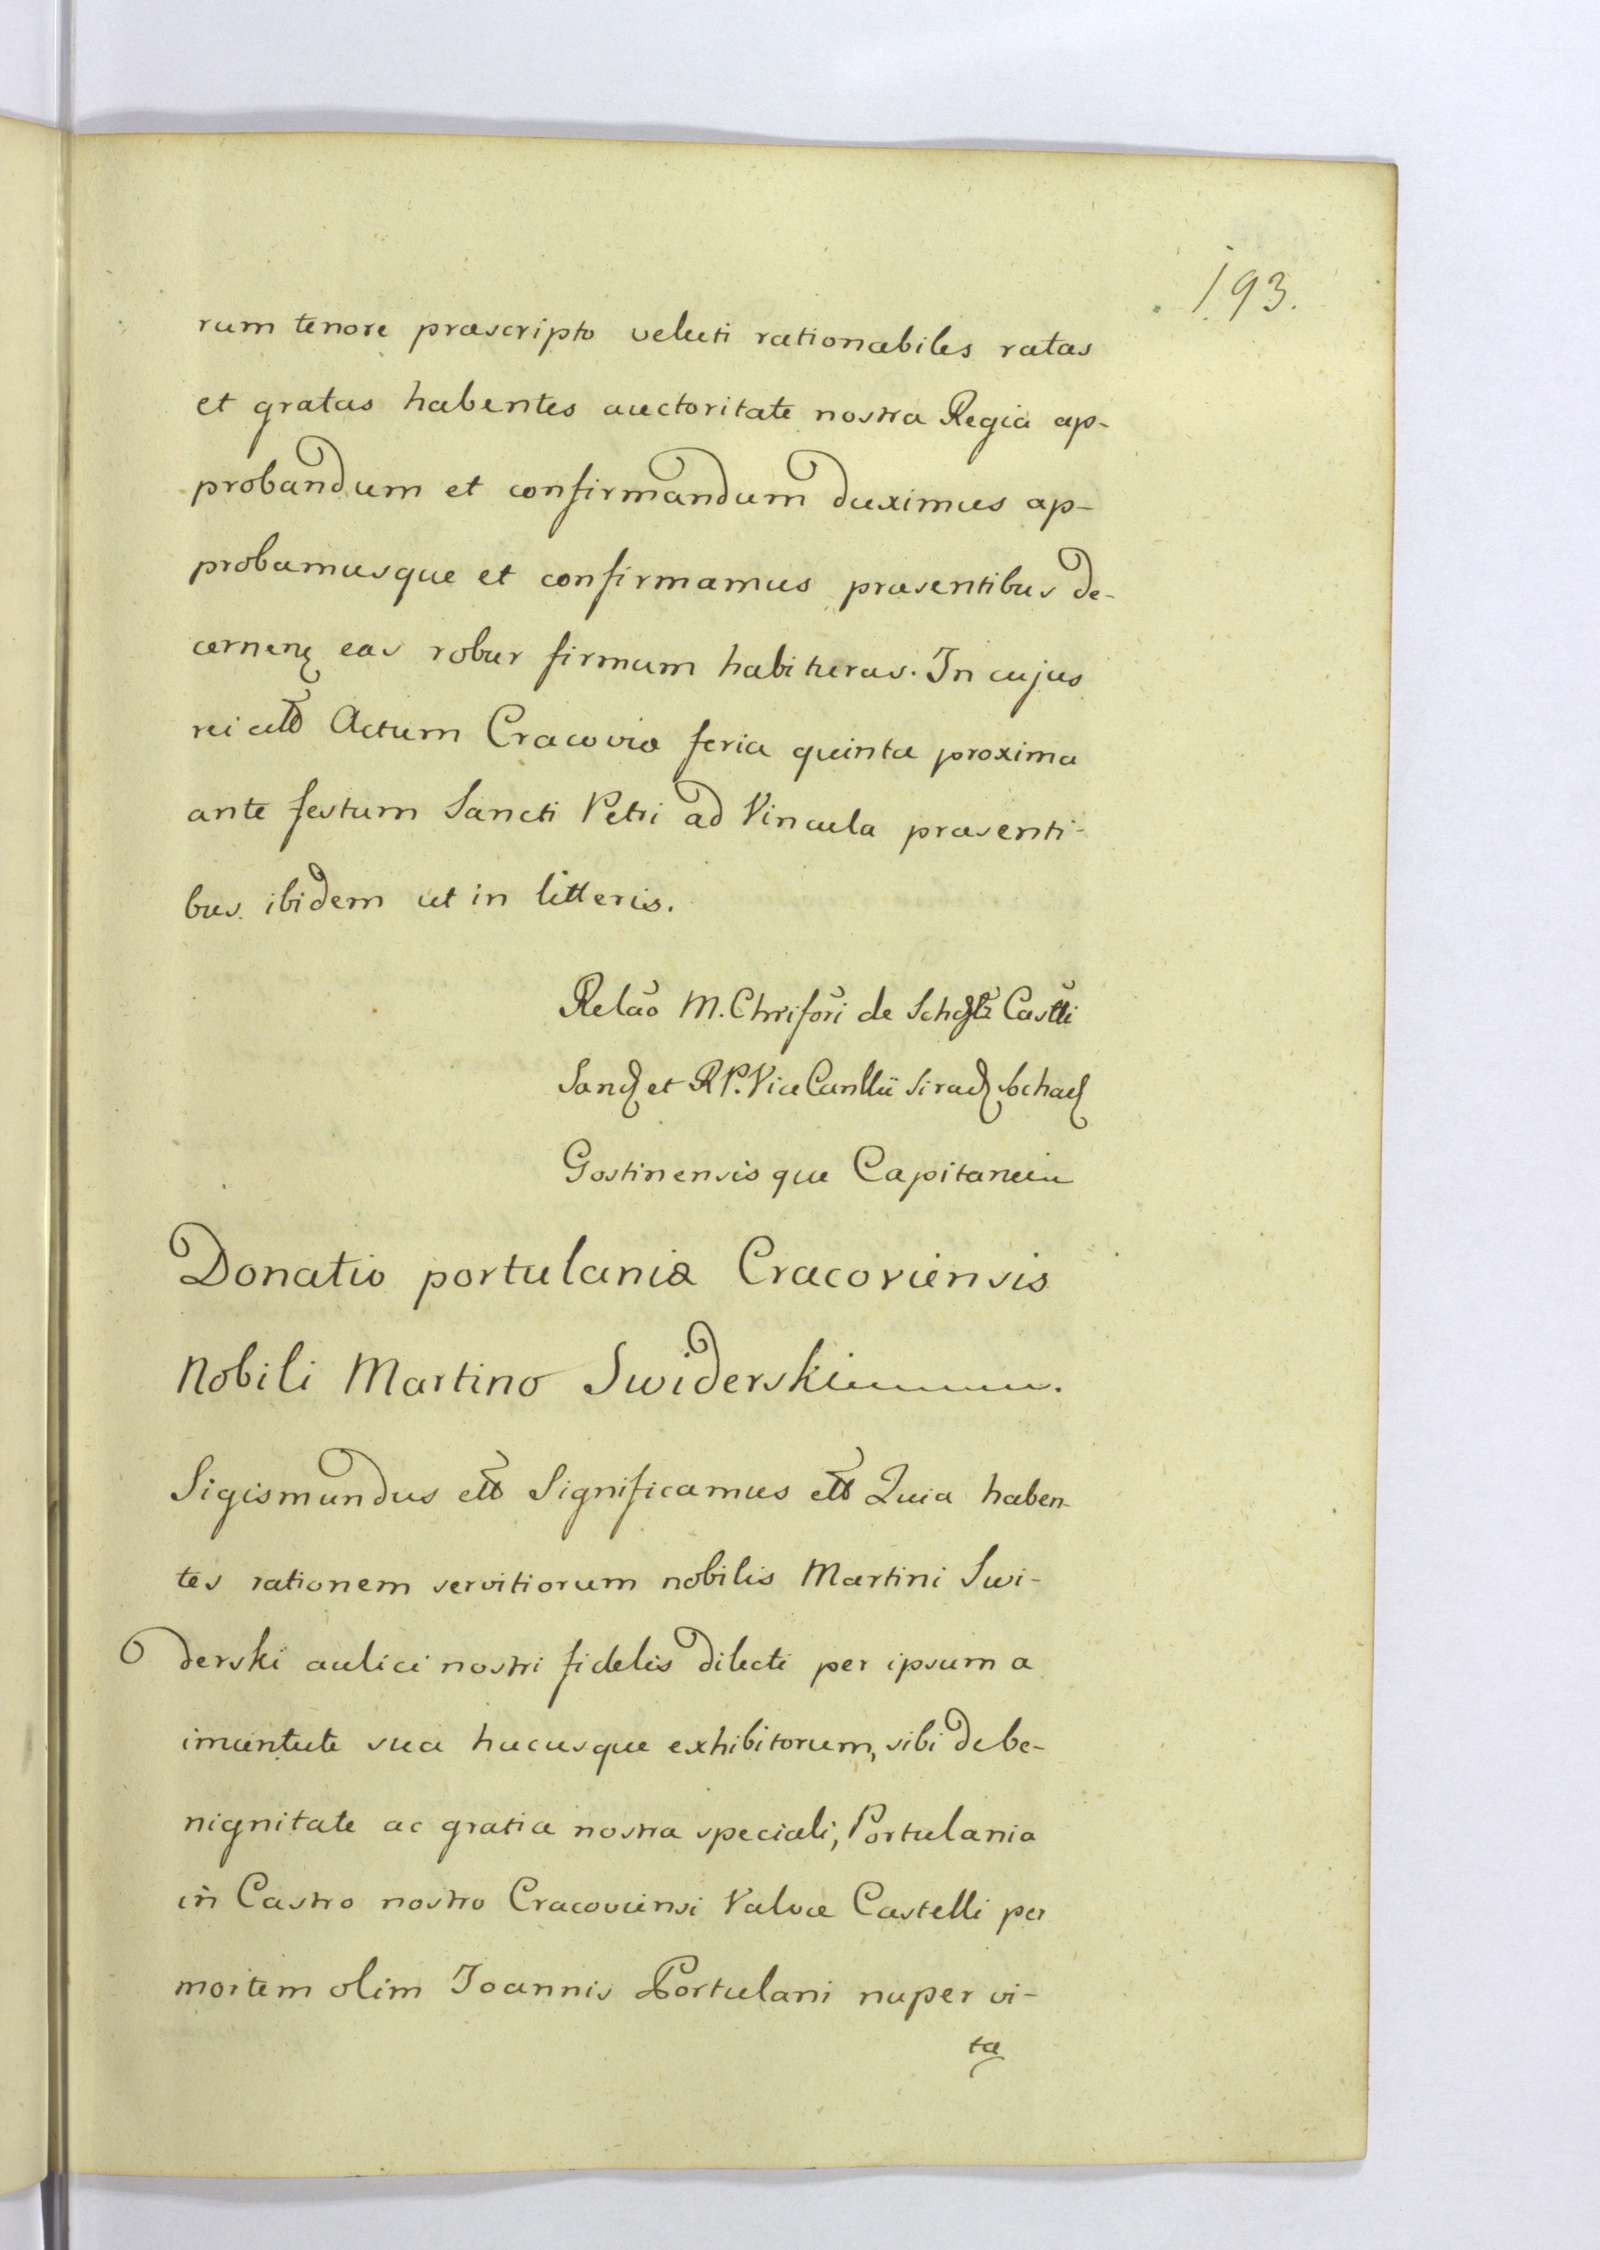 193.
rum tenore præscripto veluti rationabiles ratas
et gratas habentes auctoritate nostra Regia ap-
probandum et confirmandum duximus ap-
probamusque et confirmamus præsentibus de-
cernenȩ eas robur firmum habituras. In cujus
rei Actum Cracoviæ feria quinta proxima
ante festum Sancti Petri ad Vincula præsenti-
bus ibidem ut in litteris.
Relão M. Chrifori de Castlli
et R P. Vice Canllii
Gostinensis que Capitanei
Donatio portulaniæ Cracoviensis
Nobili Martino Swiderski
Sigismundus ett Significamus ett Quia haben-
tes rationem servitiorum nobilis Martini Swi-
derski aulici nostri fidelis dilecti per ipsum a
sua hucusque exhibitorum, sibi de be-
nignitate ac gratia nostra speciali, Portulania
in Castro nostro Cracoviensi Valvæ Castelli per
mortem olim Joannis Portulani nuper vi-
ta